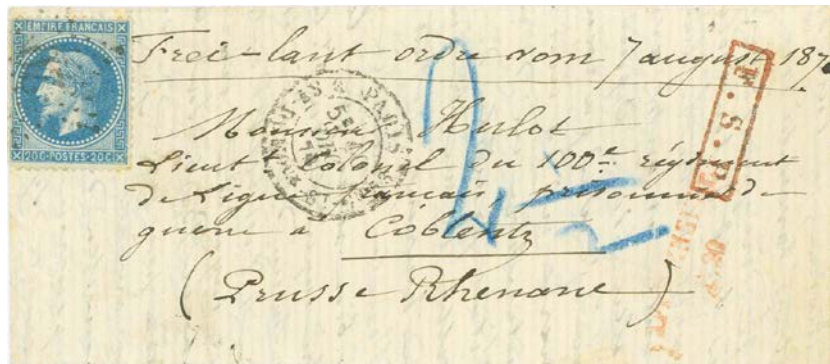 EMPIRE FRANCAIS
20C POSTES 20C
Frei-laut ordre vom 7 august 187
PARIS
Monsieur Hulot
Lieut Colonel du 100e régiment
de Ligne français, prisonnier de
guerre à Coblentz
(Prusse Rhenane)